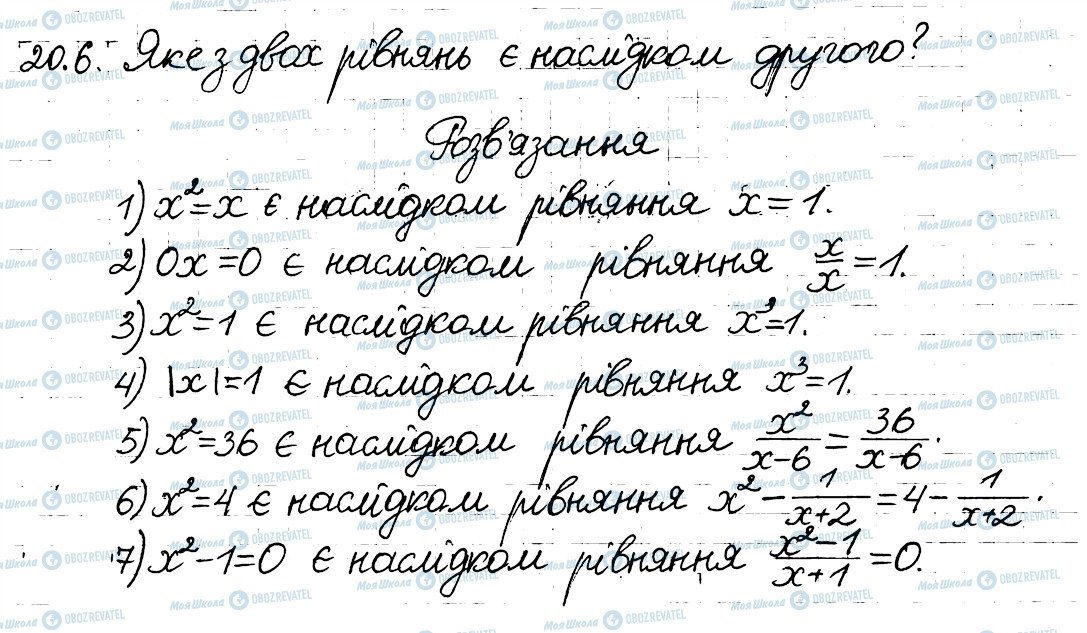 20.6. Яке з двох рівнянь є наслідком другого?
Розв'язання
1) x²=x є наслідком рівняння x=1.
2) 0x=0 є наслідком рівняння x/x=1.
3) x²=1 є наслідком рівняння x³=1.
4) |x|=1 є наслідком рівняння x³=1.
5) x²=36 є наслідком рівняння x²/(x-6)=36/(x-6).
6) x²=4 є наслідком рівняння x²-1/(x+2)=4-1/(x+2).
7) x²-1=0 є наслідком рівняння (x²-1)/(x+1)=0.